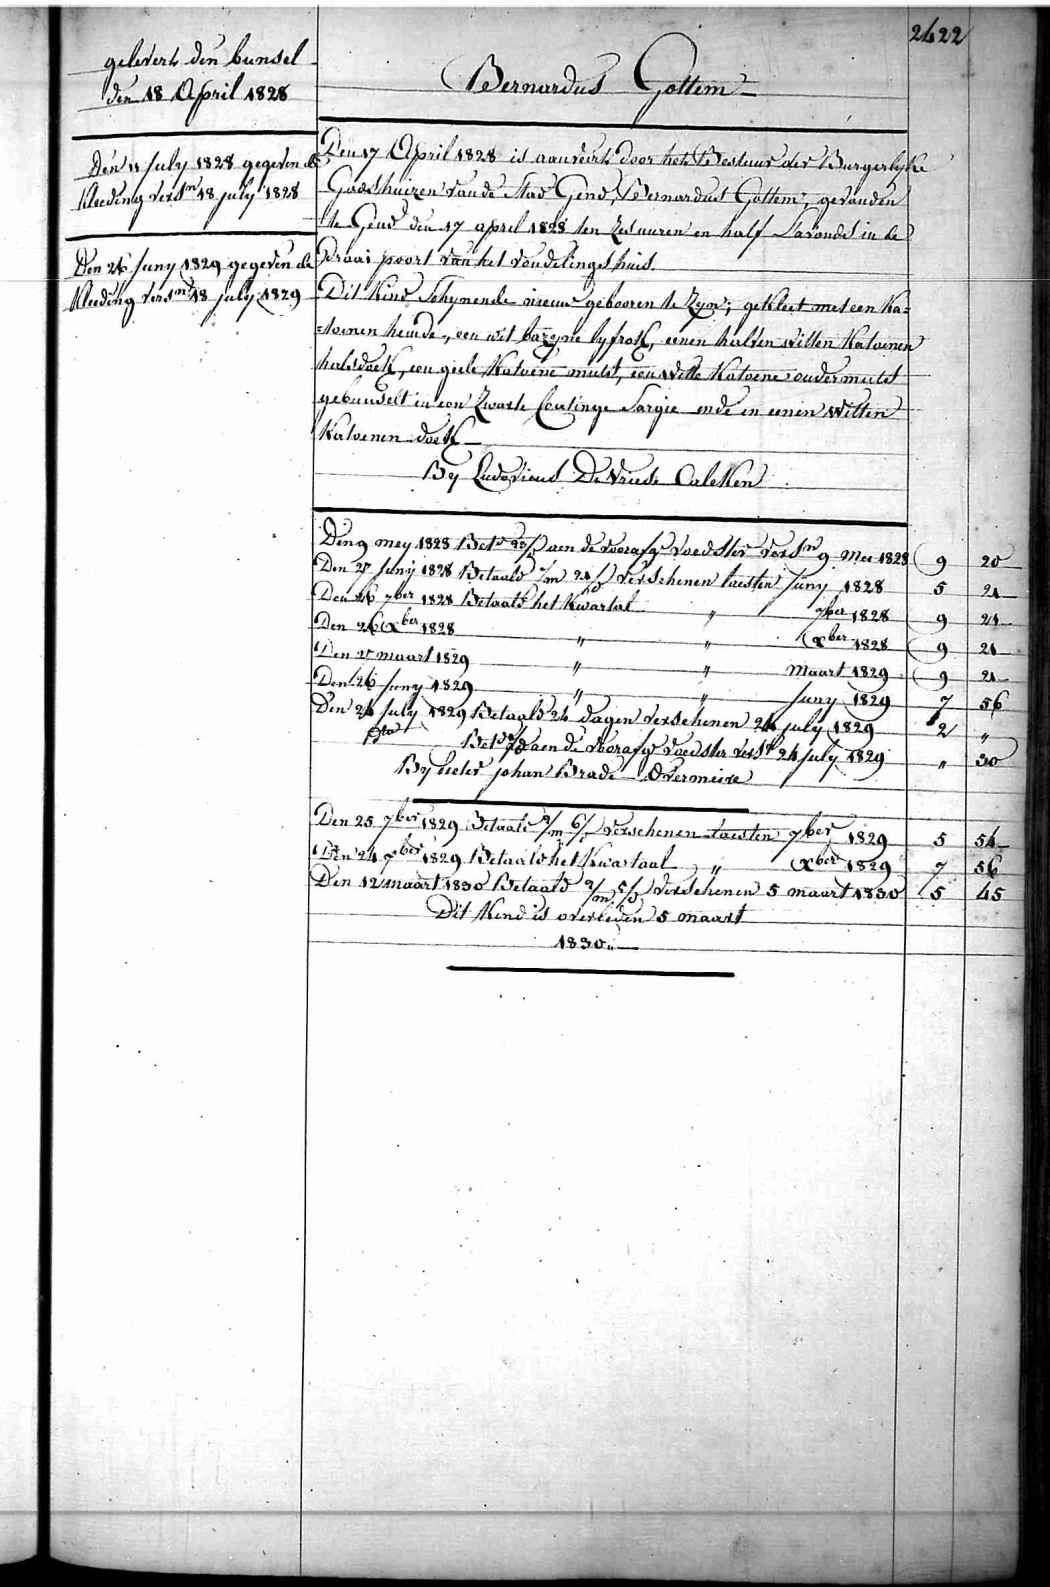 2422
gelevert den bunsel
den 18 April 1828
Den 11 July 1828 gegeven de
kleeding vers.n 18 july 1828
Den 26 Juny 1829 gegeven de
kleeding vers.n 18 july 1829
Bernardus Gottem
Den 17 April 1828 is aanveirt door het Bestuur der Burgerlyke
Godshuizen van de Stad Gend, Bernardus Gottem, gevonden
te Gend den 17 april 1828 ten zes uuren en half s'avonds in de
Draai poort van het vondelingshuis.
Dit Kind Schynende nieuw gebooren te Zyn; gekleet met een Ka=
=toenen hemde, een wit bazyne lyfrok, eenen halven witten Katoenen
halsdoek, een geele Katoene muts, een witte Katoene ondermuts
gebunselt in een Zwarte Coatinge Sargie ende in eenen Witten
Katoenen doek
By Ludovicus De Vriese Calcken
Den 9 mey 1828 Bet.d aen de voorafg.e voedster vers.n 9 Mei 1828 9 20
Den 27 Juny 1828 Betaald 1/m 21/d verschenen laesten Juny 1828 5 21
Den 26 7ber 1828 Betaald het Kwartal " 7ber 1828 9 21
Den 26 Xber 1828 " " Xber 1828 9 21
Den 27 maart 1829 " " Maart 1829 9 21
Den 26 Juny 1829 " " Juny 1829 7 56
Den 24 July 1829 Betaald 24 dagen verschenen 24 july 1829 2 "
Dto Bet.d aen de voorafg.e voedster vers.n 24 july 1829 " 30
By Pieter johan Brade Overmeire
Den 25 7ber 1829 Betaald 2/m 6/d verschenen laesten 7ber 1829 5 54
Den 24 Xber 1829 Betaald het Kwartaal " Xber 1829 7 56
Den 12 maart 1830 Betaald 2/m 5/d verschenen 5 maart 1830 5 45
Dit Kind is overleden 5 maart
1830.